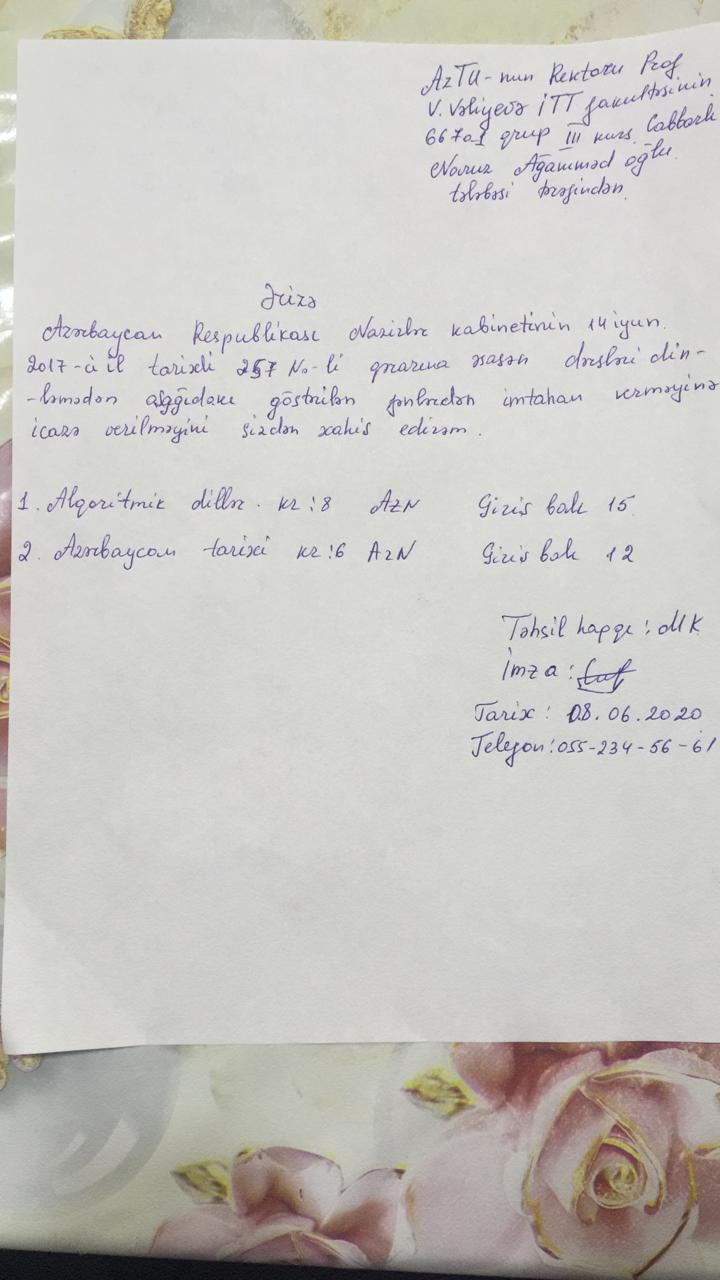 AzTU-nun Rektoru Prof
V. Vəliyevə İTT fakultəsinin
667a1 qrup III kurs Cabbarlı
Novruz Ağaəmməd oğlu
tələbəsi tərəfindən.
Ərizə
Azərbaycan Respublikası Nazirlər kabinetinin 14 iyun
2017-ci il tarixli 257 No-li qərarına əsasən dərsləri din-
-ləmədən aşğıdakı göstərilən fənlərdən imtahan verməyinə
icazə verilməyini sizdən xahis edirəm.
1. Alqoritmik dillər. kr:8 AzN Giris balı 15
2. Azərbaycan tarixi kr:6 AzN Giris balı 12
Təhsil haqqı: MK
İmza:
Tarix: 08.06.2020
Telefon: 055-234-56-61